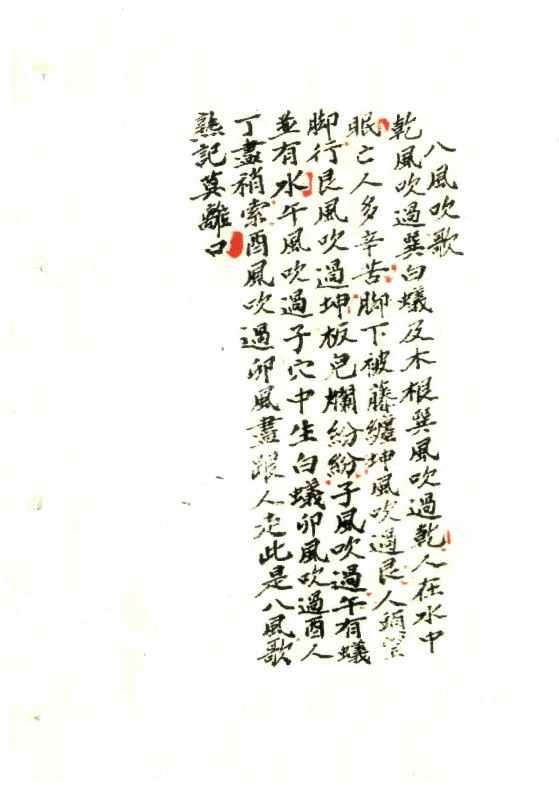 八風吹歌
乾風吹過巽白蟻及木根巽風吹過乾人在水中
眠亡人多辛苦脚下被藤纏坤風吹過艮人頭望
脚行艮風吹過坤板皃爛紛紛子風吹過午有蟻
並有水午風吹過子穴中生白蟻卯風吹過酉人
丁盡稍索酉風吹過卯風盡跟人走此是八風歌
熟記莫離口